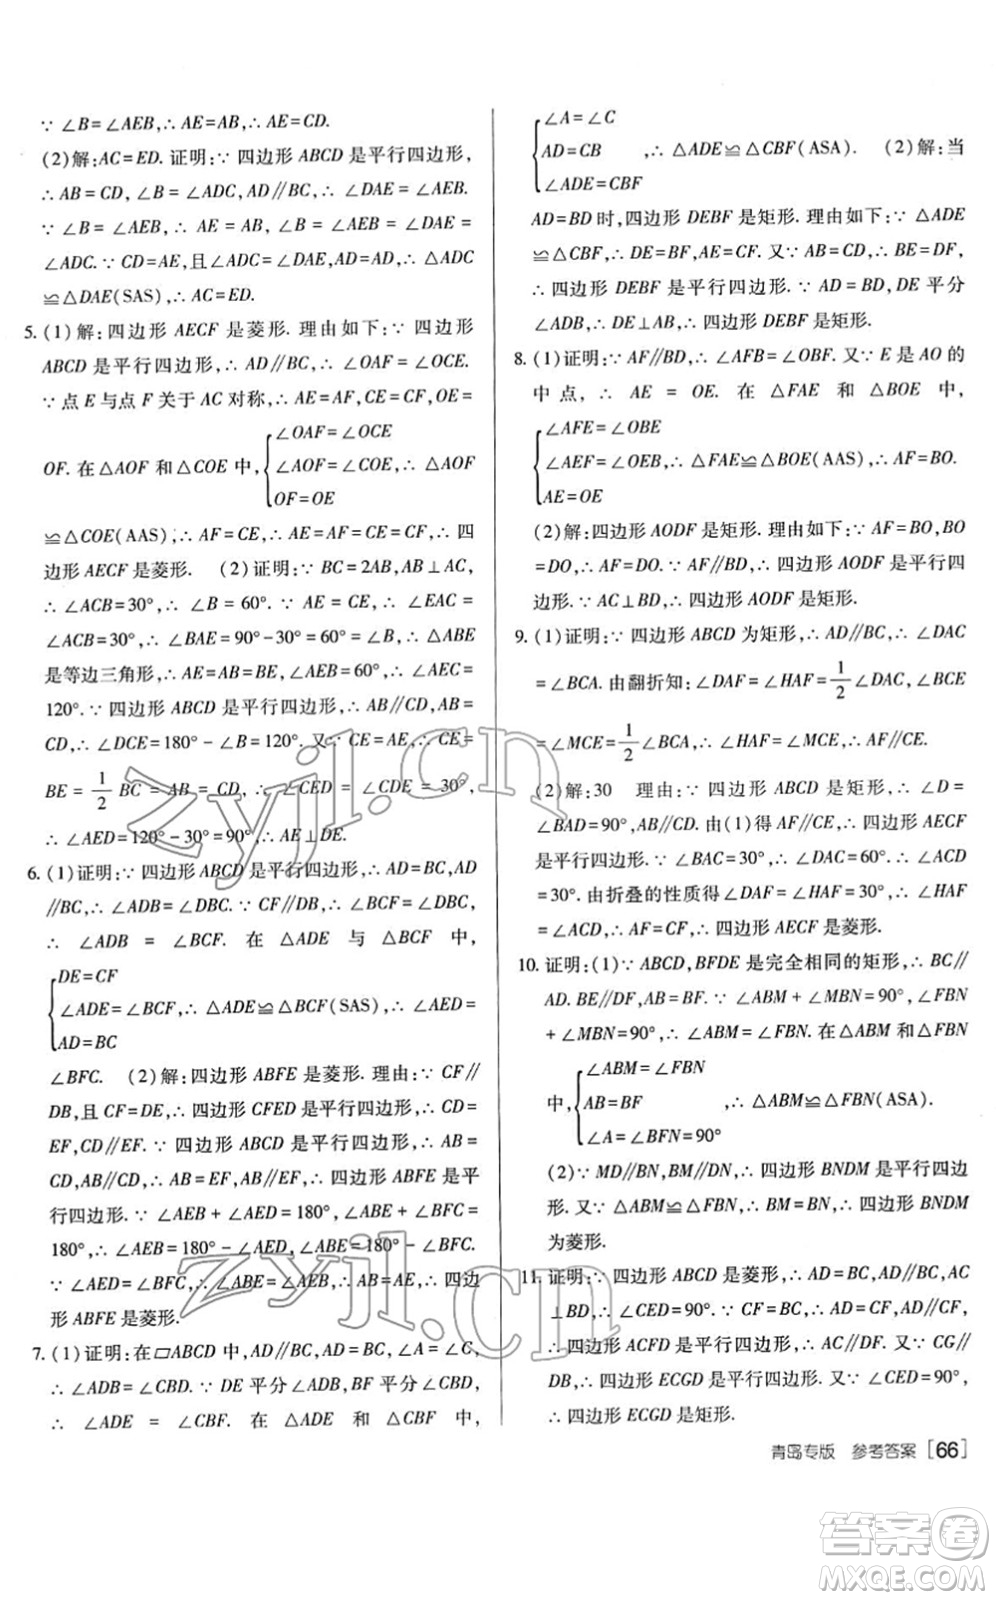 ∵ ∠B=∠AEB,∴ AE=AB,∴ AE=CD.
(2)解:AC=ED. 证明:∵ 四边形 ABCD 是平行四边形,
∴ AB = CD, ∠B = ∠ADC, AD∥BC,∴ ∠DAE = ∠AEB.
∵ ∠B = ∠AEB, ∴ ∠B = ∠AEB = ∠DAE =
∠ADC. ∵ CD=AE,且∠ADC=∠DAE,AD=AD,∴ △ADC
≌△DAE(SAS),∴ AC=ED.
5. (1)解:四边形 AECF 是菱形. 理由如下:∵ 四边形
ABCD 是平行四边形,∴ AD∥BC,∴ ∠OAF = ∠OCE.
∵点 E 与点 F 关于 AC 对称,∴ AE=AF,CE=CF,OE=
OF. 在△AOF 和△COE 中,{∠OAF=∠OCE
∠AOF=∠COE,∴ △AOF
OF=OE
≌△COE(AAS),∴ AF=CE,∴ AE=AF=CE=CF,∴ 四
边形 AECF 是菱形. (2)证明:∵ BC=2AB,AB⊥AC,
∴ ∠ACB=30°,∴ ∠B = 60°. ∵ AE = CE,∴ ∠EAC =
∠ACB=30°,∴ ∠BAE=90°-30°=60°=∠B,∴ △ABE
是等边三角形,∴ AE=AB=BE,∠AEB=60°,∴ ∠AEC=
120°. ∵ 四边形 ABCD 是平行四边形,∴ AB∥CD,AB=
CD,∴ ∠DCE=180°-∠B=120°. 又∵ CE=AE,∴ CE=
BE = 1/2 BC = AB = CD, ∴ ∠CED = ∠CDE = 30°,
∴ ∠AED=120°-30°=90°,∴ AE⊥DE.
6. (1)证明:∵ 四边形 ABCD 是平行四边形,∴ AD=BC,AD
∥BC,∴ ∠ADB=∠DBC. ∵ CF∥DB,∴ ∠BCF=∠DBC,
∴ ∠ADB = ∠BCF. 在 △ADE 与 △BCF 中,
{DE=CF
∠ADE=∠BCF,∴ △ADE≌△BCF(SAS),∴ ∠AED=
AD=BC
∠BFC. (2)解:四边形 ABFE 是菱形. 理由:∵ CF∥
DB,且 CF=DE,∴ 四边形 CFED 是平行四边形,∴ CD=
EF,CD∥EF. ∵ 四边形 ABCD 是平行四边形,∴ AB=
CD,AB∥CD,∴ AB=EF,AB∥EF,∴ 四边形 ABFE 是平
行四边形. ∵ ∠AEB + ∠AED = 180°, ∠ABE + ∠BFC =
180°,∴ ∠AEB=180°-∠AED,∠ABE=180°-∠BFC.
∵ ∠AED=∠BFC,∴ ∠ABE=∠AEB,∴ AB=AE,∴ 四边
形 ABFE 是菱形.
7. (1)证明:在▱ABCD 中,AD∥BC,AD=BC,∠A=∠C,
∴ ∠ADB=∠CBD. ∵ DE 平分∠ADB,BF 平分∠CBD,
∴ ∠ADE = ∠CBF. 在 △ADE 和 △CBF 中,
{∠A=∠C
AD=CB ,∴ △ADE≌△CBF(ASA). (2)解:当
∠ADE=CBF
AD=BD 时,四边形 DEBF 是矩形. 理由如下:∵ △ADE
≌△CBF,∴ DE=BF,AE=CF. 又∵ AB=CD,∴ BE=DF,
∴ 四边形 DEBF 是平行四边形. ∵ AD=BD,DE 平分
∠ADB,∴ DE⊥AB,∴ 四边形 DEBF 是矩形.
8. (1)证明:∵ AF∥BD,∴ ∠AFB=∠OBF. 又∵ E 是 AO 的
中点,∴ AE = OE. 在 △FAE 和 △BOE 中,
{∠AFE=∠OBE
∠AEF=∠OEB,∴ △FAE≌△BOE(AAS),∴ AF=BO.
AE=OE
(2)解:四边形 AODF 是矩形. 理由如下:∵ AF=BO,BO
=DO,∴ AF=DO. ∵ AF∥BD,∴ 四边形 AODF 是平行四
边形. ∵ AC⊥BD,∴ 四边形 AODF 是矩形.
9. (1)证明:∵ 四边形 ABCD 为矩形,∴ AD∥BC,∴ ∠DAC
=∠BCA. 由翻折知:∠DAF=∠HAF=1/2∠DAC,∠BCE
=∠MCE=1/2∠BCA,∴ ∠HAF=∠MCE,∴ AF∥CE.
(2)解:30 理由:∵ 四边形 ABCD 是矩形,∴ ∠D=
∠BAD=90°,AB∥CD. 由(1)得 AF∥CE,∴ 四边形 AECF
是平行四边形. ∵ ∠BAC=30°,∴ ∠DAC=60°. ∴ ∠ACD
=30°. 由折叠的性质得∠DAF=∠HAF=30°,∴ ∠HAF
=∠ACD,∴ AF=CF,∴ 四边形 AECF 是菱形.
10. 证明:(1)∵ ABCD,BFDE 是完全相同的矩形,∴ BC∥
AD. BE∥DF,AB=BF. ∵ ∠ABM+∠MBN=90°,∠FBN
+∠MBN=90°,∴ ∠ABM=∠FBN. 在△ABM 和△FBN
中,{∠ABM=∠FBN
AB=BF ,∴ △ABM≌△FBN(ASA).
∠A=∠BFN=90°
(2)∵ MD∥BN,BM∥DN,∴ 四边形 BNDM 是平行四边
形. 又∵ △ABM≌△FBN,∴ BM=BN,∴ 四边形 BNDM
为菱形.
11. 证明:∵ 四边形 ABCD 是菱形,∴ AD=BC,AD∥BC,AC
⊥BD,∴ ∠CED=90°. ∵ CF=BC,∴ CF=AD,∴ 四边
形 ACFD 是平行四边形,∴ AC∥DF. 又∵ CG∥
DB,∴ 四边形 ECGD 是平行四边形. 又∵ ∠CED=90°,
∴ 四边形 ECGD 是矩形.
青岛专版 参考答案 [66]
zyjl.cn
zyjl.cn
答案卷
MXQE.COM